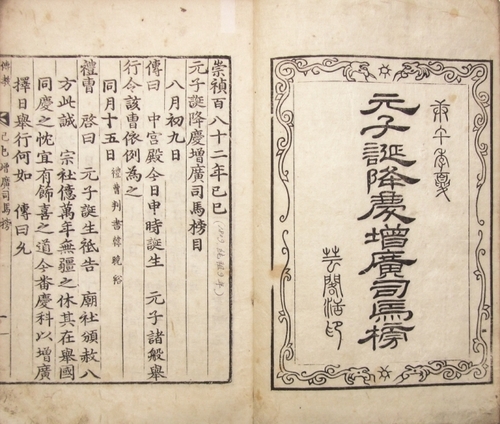 庚午季夏
元子誕降慶增廣司馬榜
芸閣活印
崇禎百八十二年己巳
元子誕降慶增廣司馬榜目
八月初九日
傳曰 中宮殿今日申時誕生 元子諸般舉
行令該曺依例為之
同月十五日 禮曺判書韓晚裕
禮曺 啓曰 元子誕生祗告 廟社頒赦八
方此誠 宗社億萬年無疆之休其在舉國
同慶之忱宜有飾喜之道今番慶科以增廣
擇日舉行何如 傳曰允
傳教 己巳增廣司馬榜 一